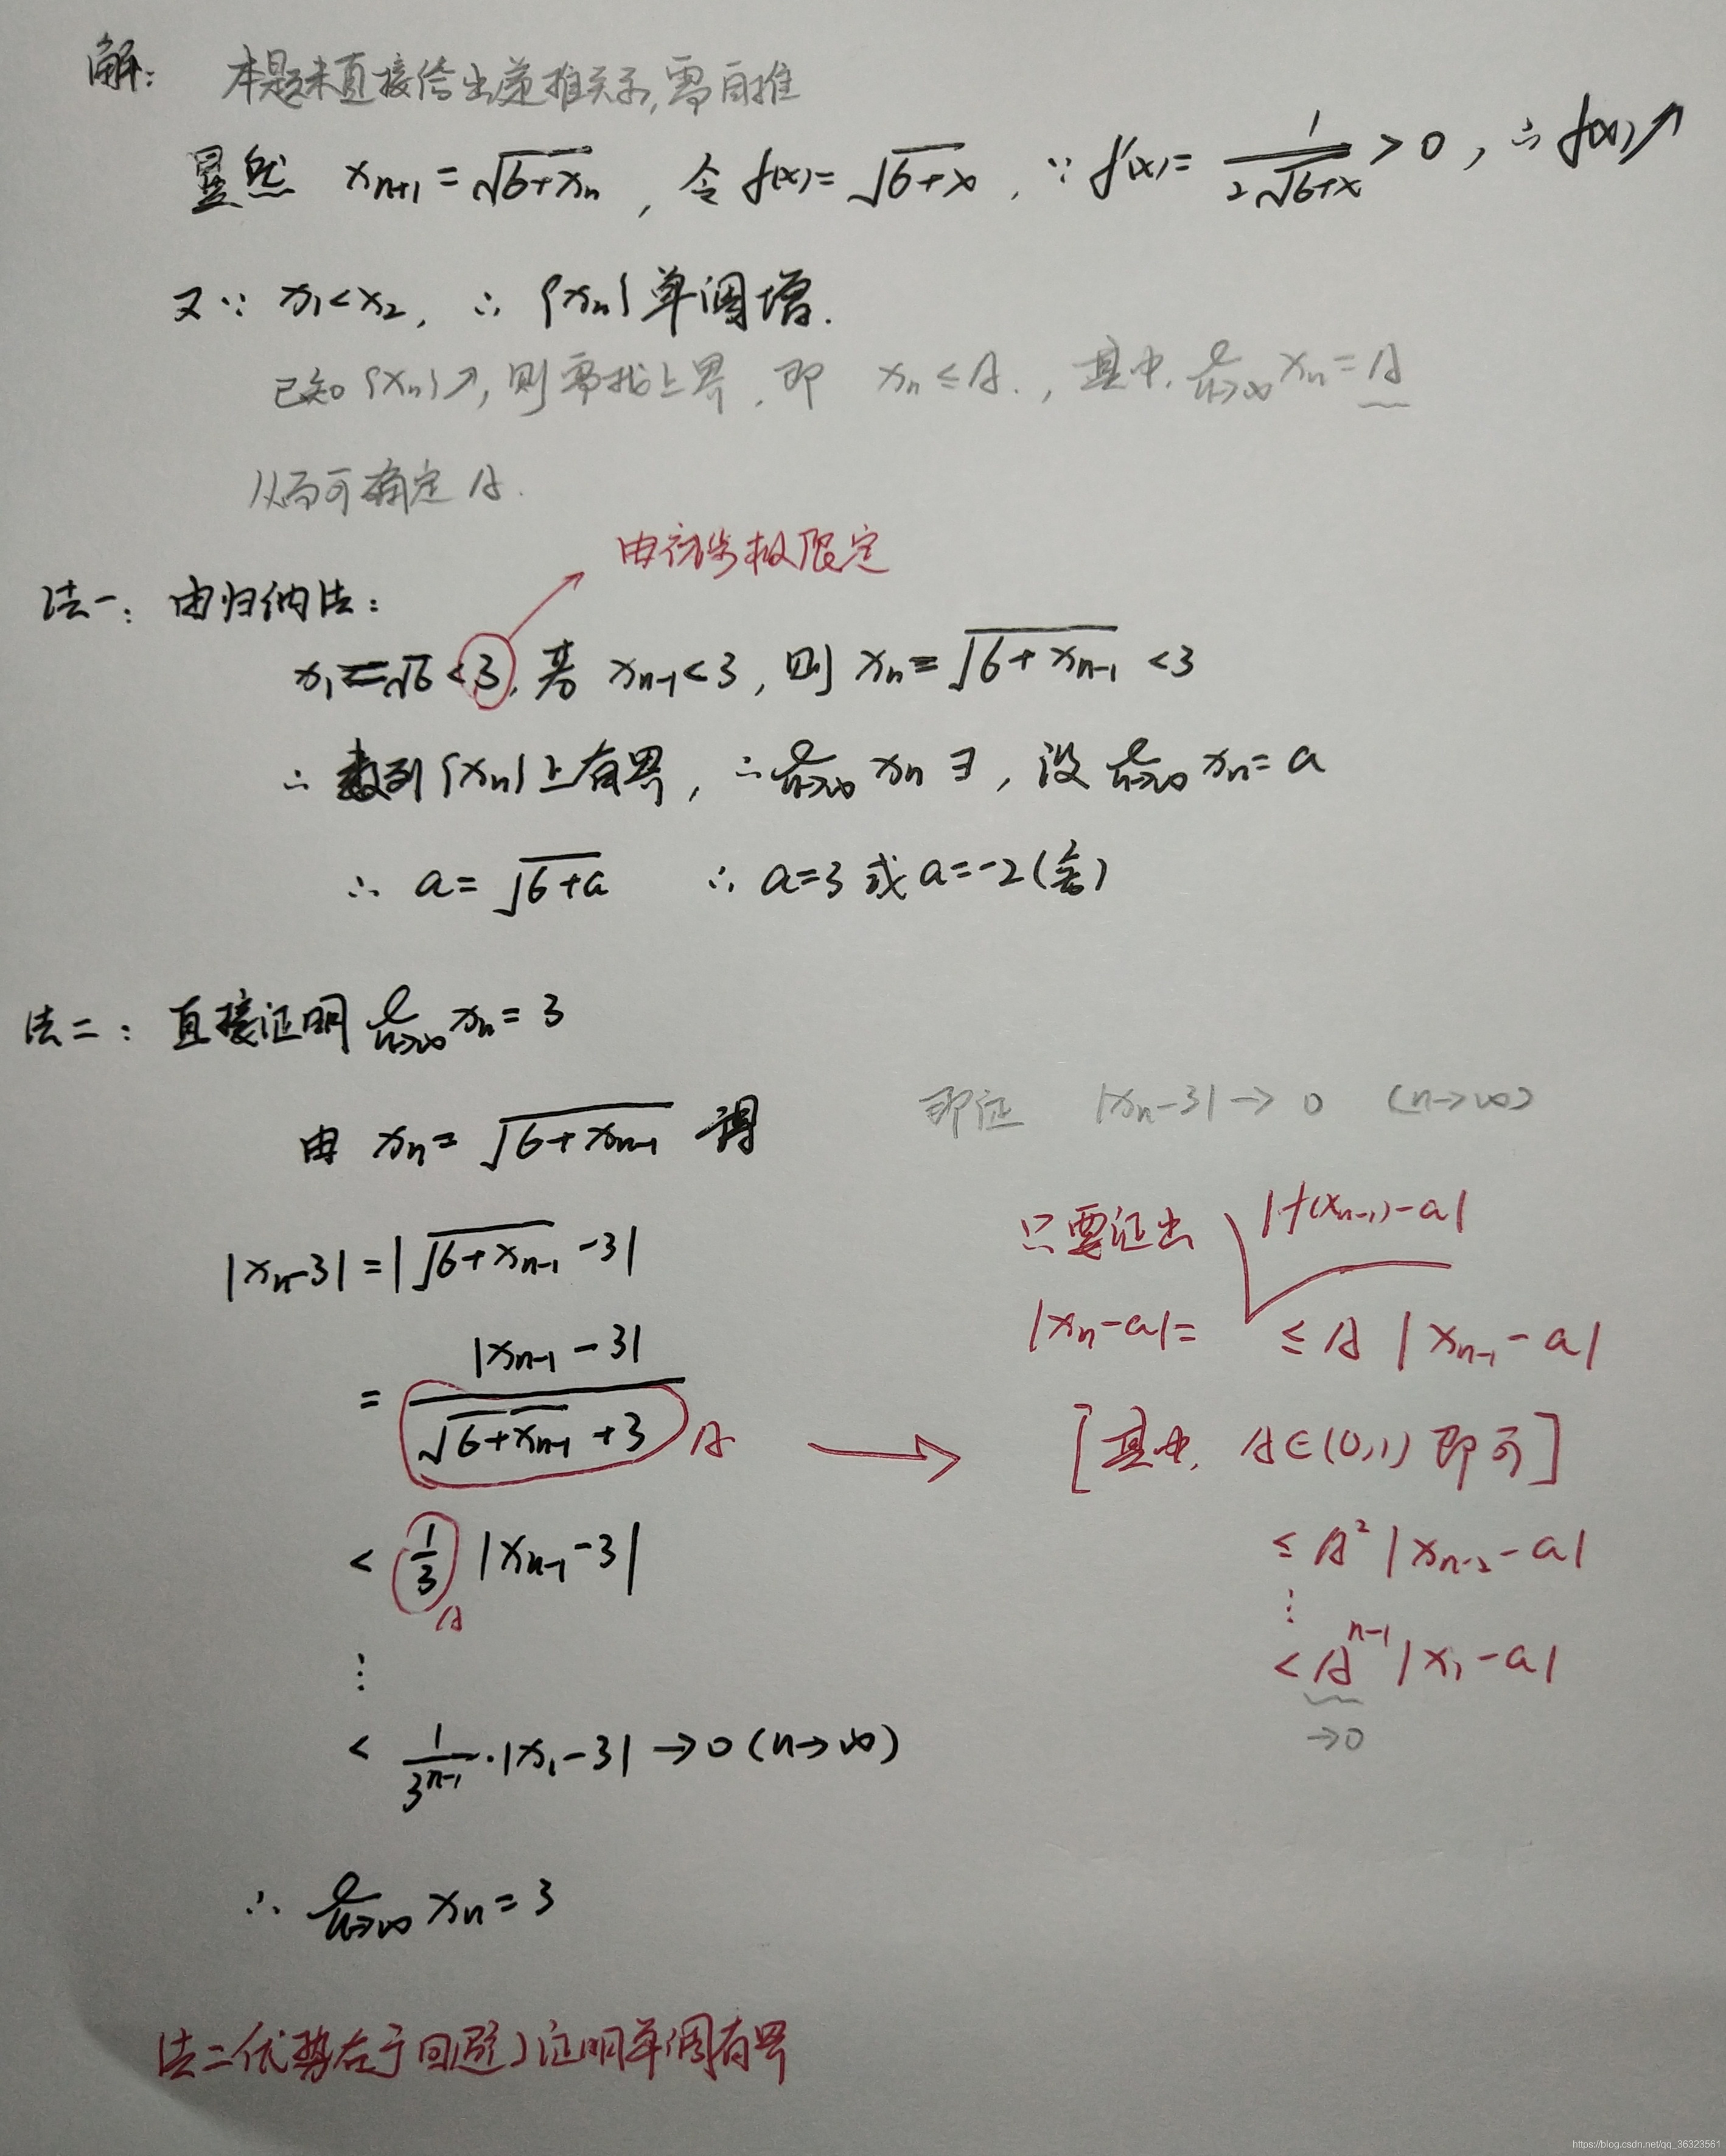 解: 本题未直接给出递推关系,需自推
显然 xₙ₊₁=√(6+xₙ) , 令 f(x)=√(6+x) , ∵ f'(x)= 1/(2√(6+x)) >0 , ∴ f(x)↗
又∵ x₁<x₂, ∴ {xₙ}单调增.
已知{xₙ}↗, 则需找上界, 即 xₙ≤A. , 其中, ℓ n→∞ xₙ=A
从而可确定 A.
由初步极限定
法一: 由归纳法:
x₁=√6<3, 若 xₙ₋₁<3, 则 xₙ=√(6+xₙ₋₁) <3
∴ 数列{xₙ}上有界, ∴ ℓ n→∞ xₙ ∃, 设 ℓ n→∞ xₙ=a
∴ a=√(6+a) ∴ a=3 或 a=-2(舍)
法二: 直接证明 ℓ n→∞ xₙ=3
由 xₙ=√(6+xₙ₋₁) 得
即证 |xₙ-3|→0 (n→∞)
|xₙ-3|=|√(6+xₙ₋₁) -3|
= |xₙ₋₁-3| / (√(6+xₙ₋₁) +3) A →
< 1/3 |xₙ₋₁-3|
A
⋮
< 1/3ⁿ⁻¹·|x₁-3|→0(n→∞)
∴ ℓ n→∞ xₙ=3
只要证出 |f(xₙ₋₁)-a|
|xₙ-a|= ≤A |xₙ₋₁-a|
[其中, A∈(0,1) 即可]
≤A²|xₙ₋₂-a|
⋮
<Aⁿ⁻¹|x₁-a|
→0
法二优势在于回避了证明单调有界
https://blog.csdn.net/qq_36323561